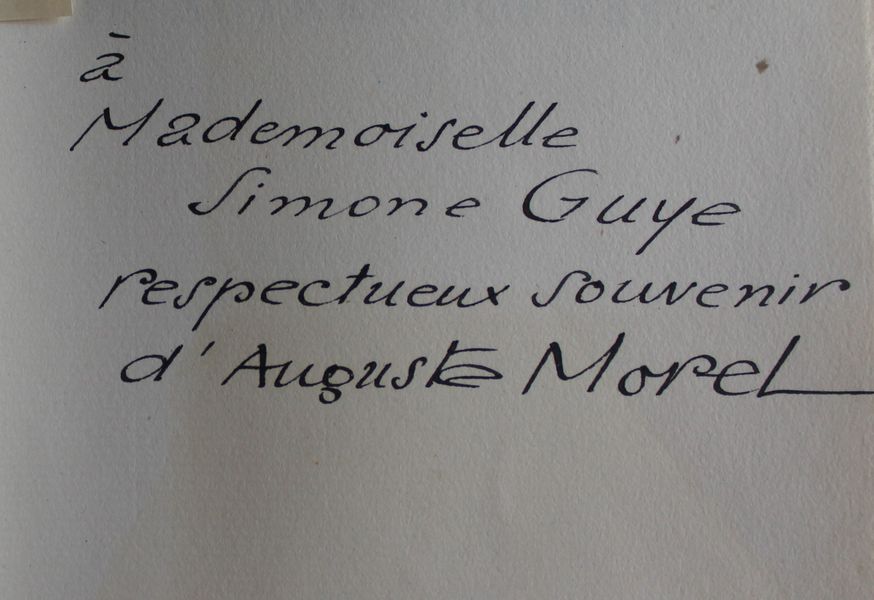 à
Mademoiselle
Simone Guye
respectueux souvenir
d'Auguste Morel